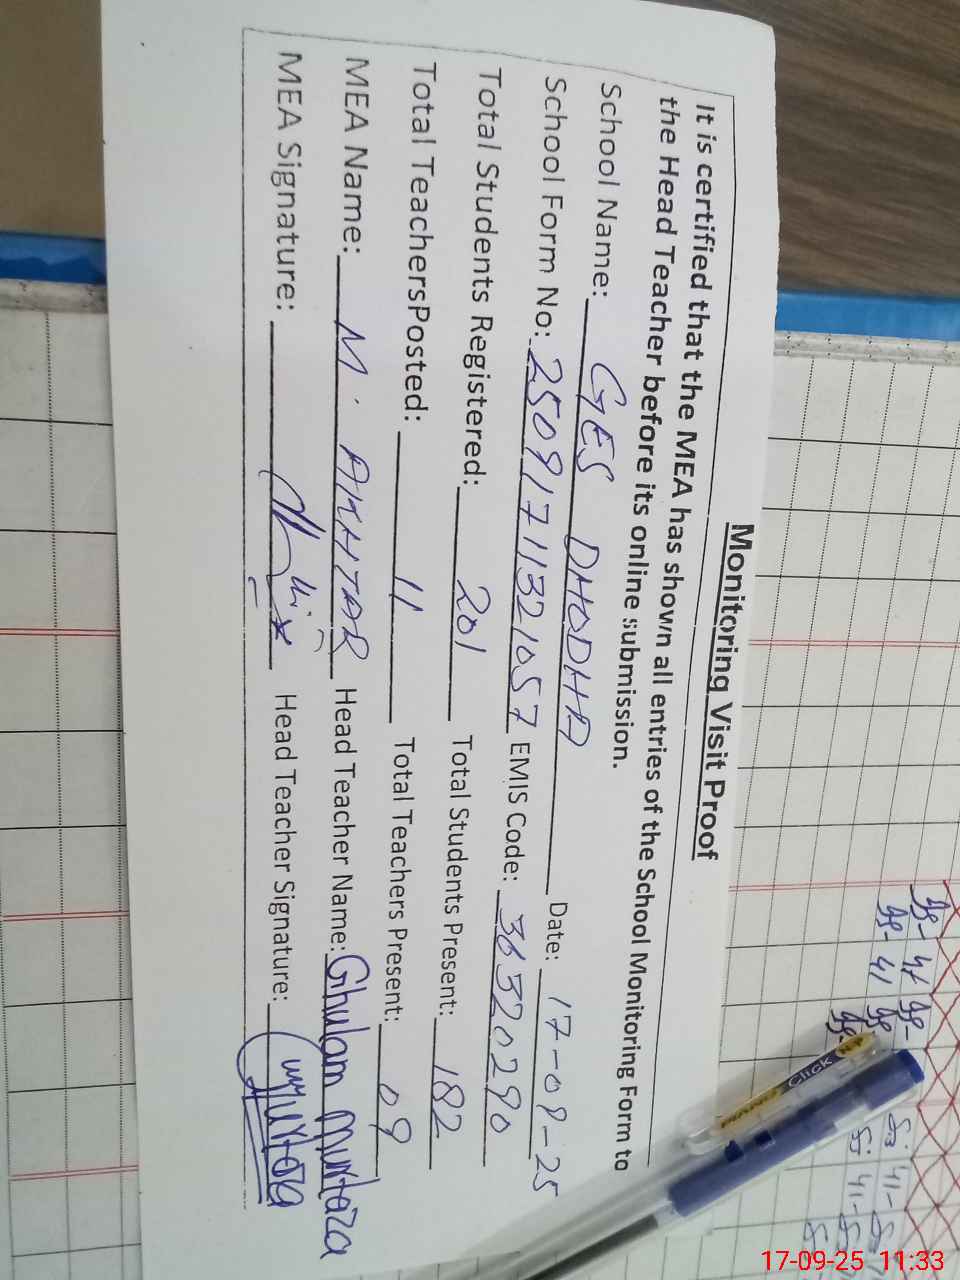 Monitoring Visit Proof
It is certified that the MEA has shown all entries of the School Monitoring Form to
the Head Teacher before its online submission.
School Name: GES DHODHA Date: 17-09-25
School Form No: 25091711321057 EMIS Code: 36320290
Total Students Registered: 201 Total Students Present: 182
Total TeachersPosted: 11 Total Teachers Present: 09
MEA Name: M. AKHTAR Head Teacher Name: Ghulam Murtaza
MEA Signature: Head Teacher Signature:
PIANO Click
17-09-25 11:33